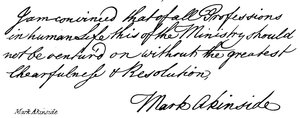 I am convinced that of all Professions
in human Life this of the Ministry should
not be ventur'd on without the greatest
Chearfulness & Resolution.
Mark Akinside
Mark Akinside